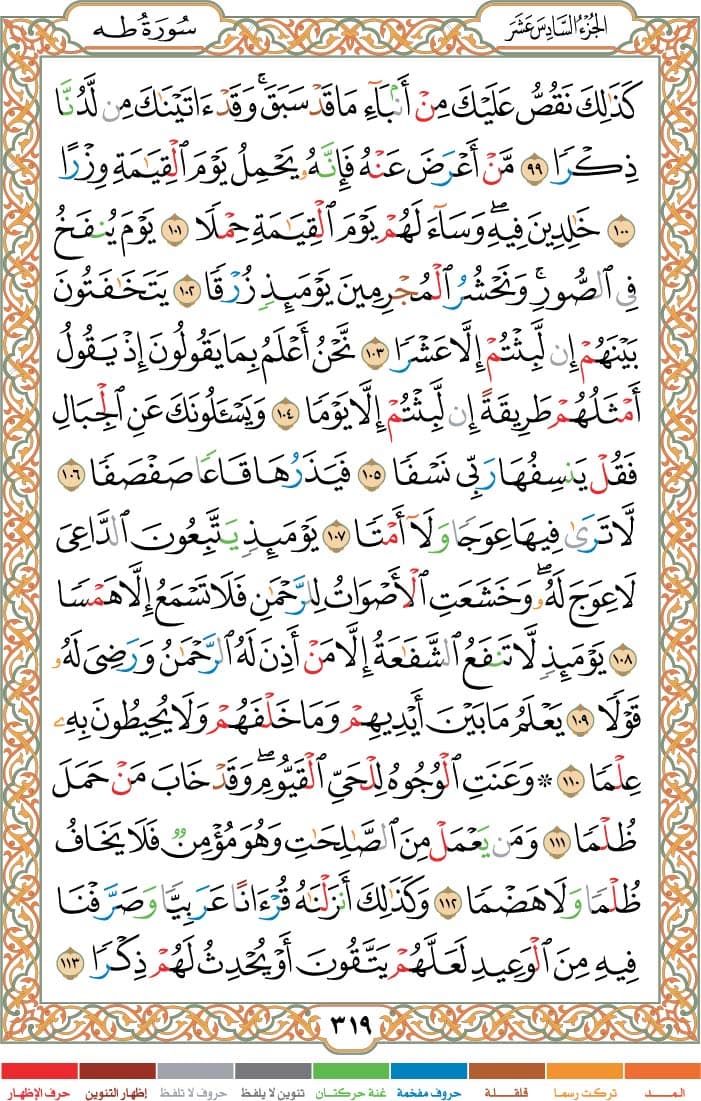 الجُزْءُ السَّادِسَ عَشَرَ
سُورَةُ طه
كَذَٰلِكَ نَقُصُّ عَلَيْكَ مِنْ أَنۢبَآءِ مَا قَدْ سَبَقَۚ وَقَدْ ءَاتَيْنَٰكَ مِن لَّدُنَّا
ذِكْرًا ٩٩ مَّنْ أَعْرَضَ عَنْهُ فَإِنَّهُۥ يَحْمِلُ يَوْمَ ٱلْقِيَٰمَةِ وِزْرًا
١٠٠ خَٰلِدِينَ فِيهِۖ وَسَآءَ لَهُمْ يَوْمَ ٱلْقِيَٰمَةِ حِمْلًا ١٠١ يَوْمَ يُنفَخُ
فِى ٱلصُّورِۚ وَنَحْشُرُ ٱلْمُجْرِمِينَ يَوْمَئِذٍ زُرْقًا ١٠٢ يَتَخَٰفَتُونَ
بَيْنَهُمْ إِن لَّبِثْتُمْ إِلَّا عَشْرًا ١٠٣ نَّحْنُ أَعْلَمُ بِمَا يَقُولُونَ إِذْ يَقُولُ
أَمْثَلُهُمْ طَرِيقَةً إِن لَّبِثْتُمْ إِلَّا يَوْمًا ١٠٤ وَيَسْـَٔلُونَكَ عَنِ ٱلْجِبَالِ
فَقُلْ يَنسِفُهَا رَبِّى نَسْفًا ١٠٥ فَيَذَرُهَا قَاعًا صَفْصَفًا ١٠٦
لَّا تَرَىٰ فِيهَا عِوَجًا وَلَآ أَمْتًا ١٠٧ يَوْمَئِذٍ يَتَّبِعُونَ ٱلدَّاعِىَ
لَا عِوَجَ لَهُۥۖ وَخَشَعَتِ ٱلْأَصْوَاتُ لِلرَّحْمَٰنِ فَلَا تَسْمَعُ إِلَّا هَمْسًا
١٠٨ يَوْمَئِذٍ لَّا تَنفَعُ ٱلشَّفَٰعَةُ إِلَّا مَنْ أَذِنَ لَهُ ٱلرَّحْمَٰنُ وَرَضِىَ لَهُۥ
قَوْلًا ١٠٩ يَعْلَمُ مَا بَيْنَ أَيْدِيهِمْ وَمَا خَلْفَهُمْ وَلَا يُحِيطُونَ بِهِۦ
عِلْمًا ١١٠ * وَعَنَتِ ٱلْوُجُوهُ لِلْحَىِّ ٱلْقَيُّومِۖ وَقَدْ خَابَ مَنْ حَمَلَ
ظُلْمًا ١١١ وَمَن يَعْمَلْ مِنَ ٱلصَّٰلِحَٰتِ وَهُوَ مُؤْمِنٌ فَلَا يَخَافُ
ظُلْمًا وَلَا هَضْمًا ١١٢ وَكَذَٰلِكَ أَنزَلْنَٰهُ قُرْءَانًا عَرَبِيًّا وَصَرَّفْنَا
فِيهِ مِنَ ٱلْوَعِيدِ لَعَلَّهُمْ يَتَّقُونَ أَوْ يُحْدِثُ لَهُمْ ذِكْرًا ١١٣
٣١٩
المـــد تركت رسما قلقلة حروف مفخمة غنة حركتان تنوين لا يلفظ حروف لا تلفظ إظهار التنوين حرف الإظهار